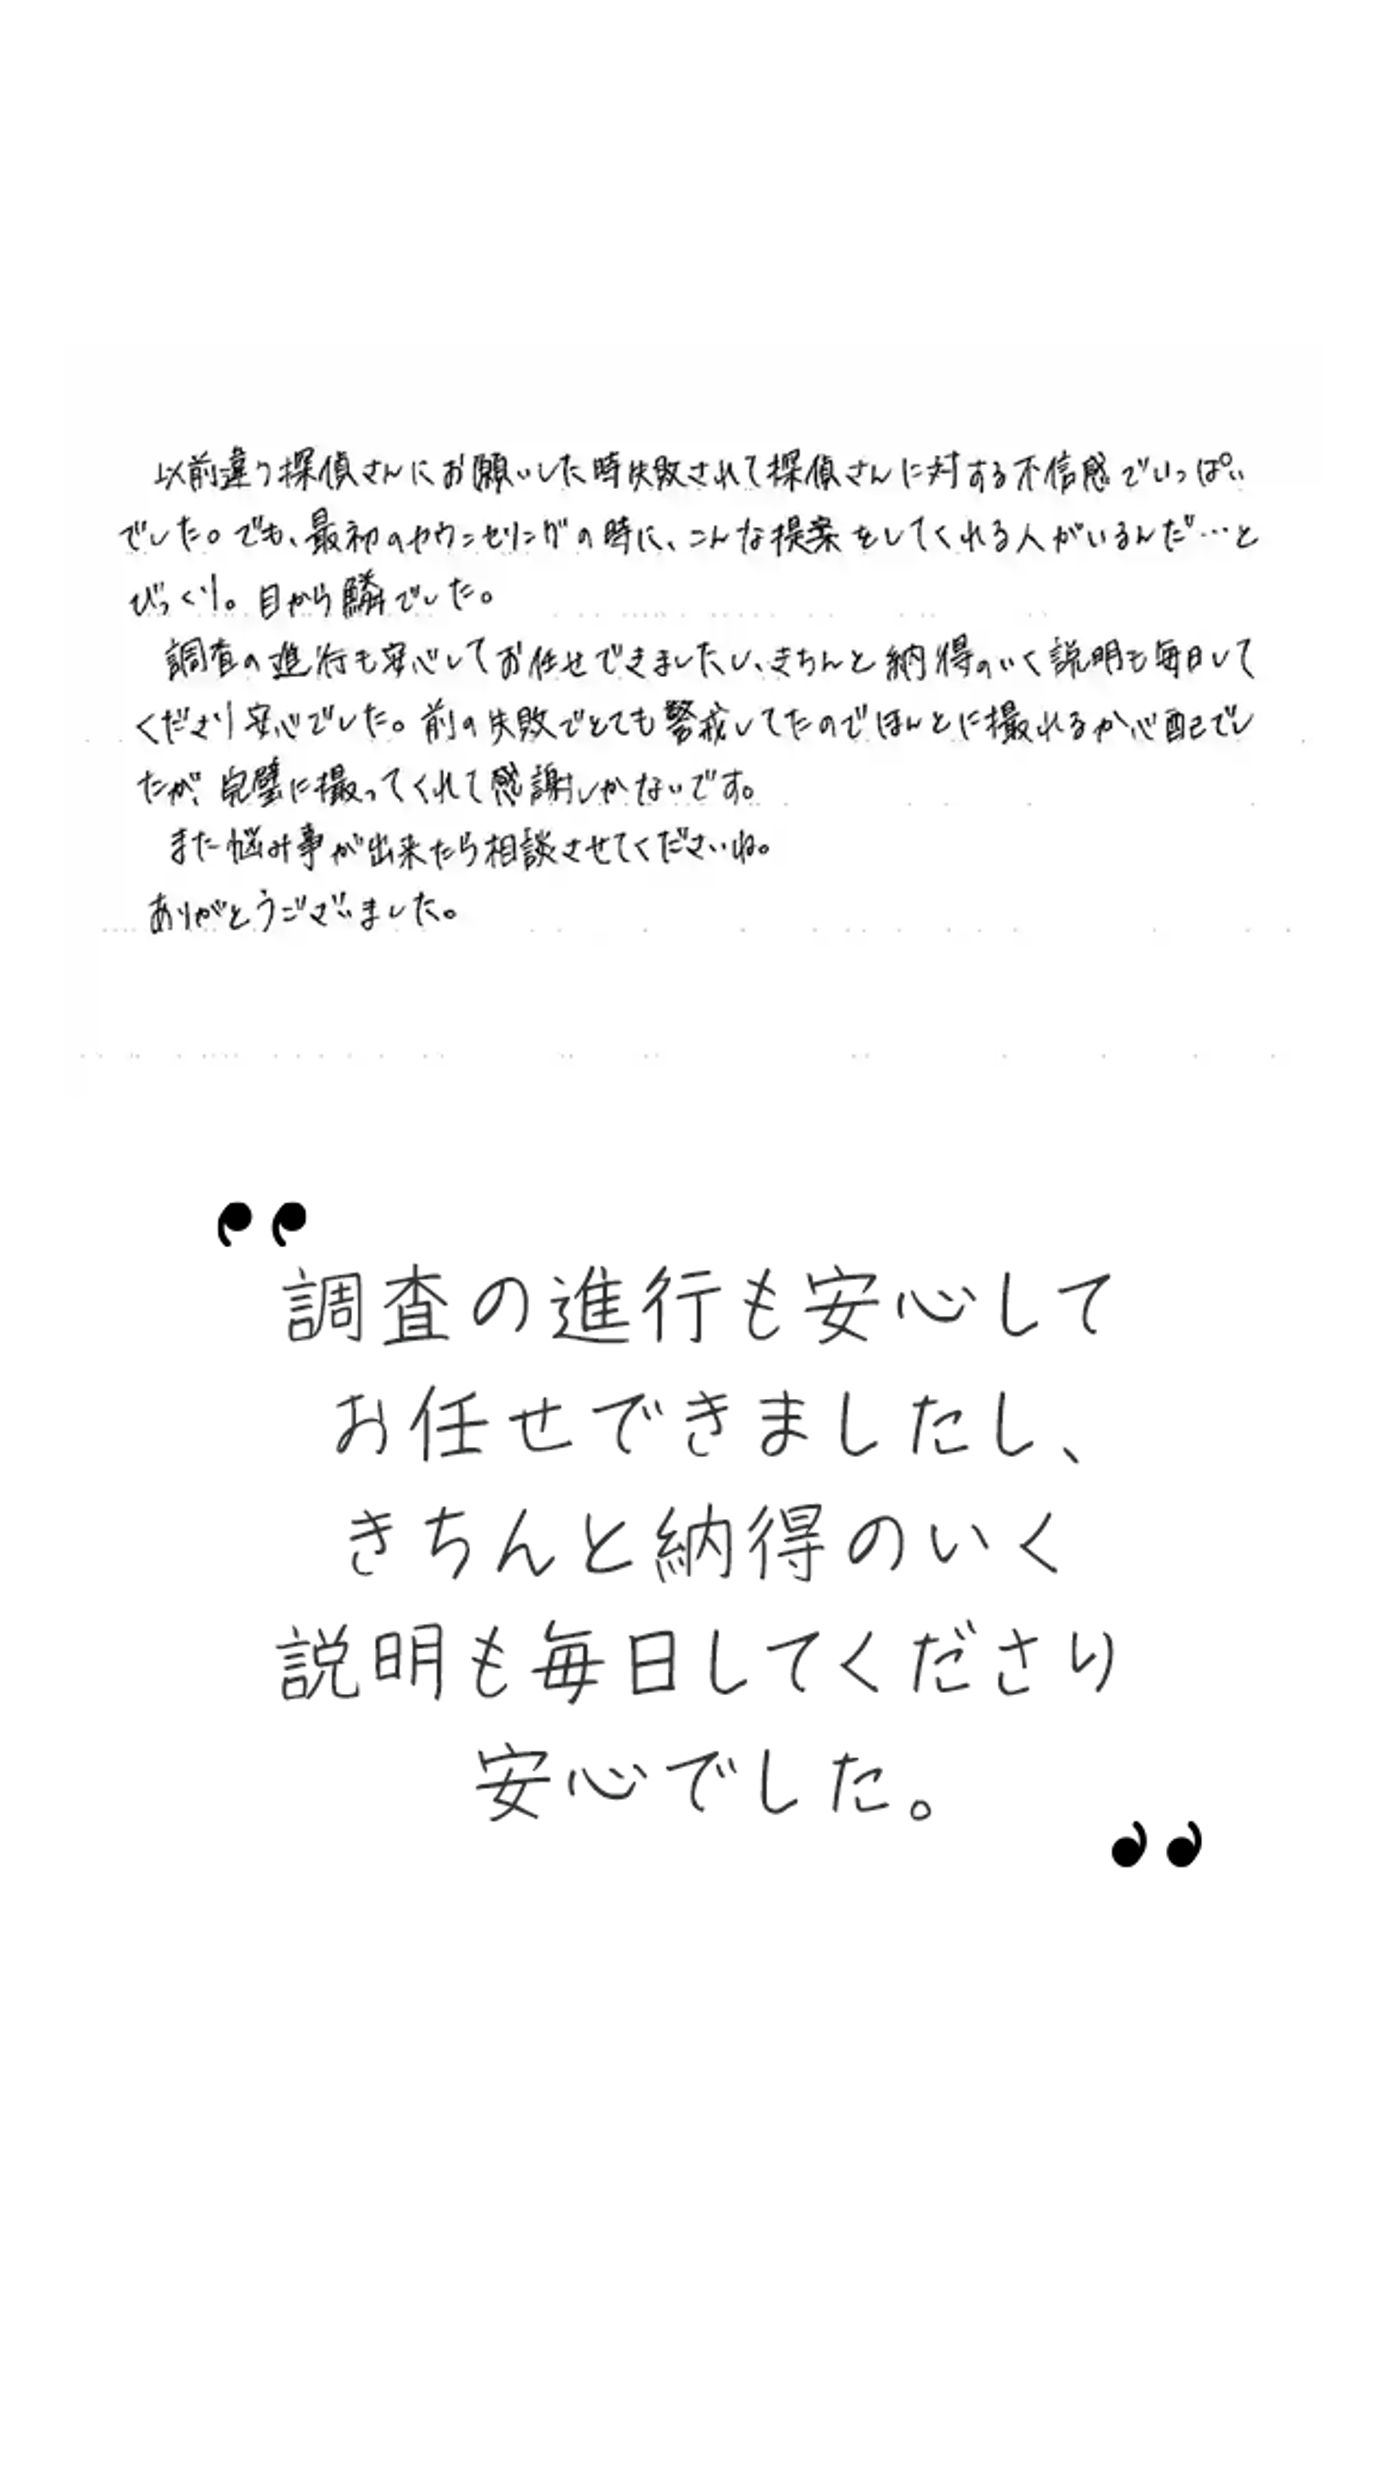 以前違う探偵さんにお願いした時失敗されて探偵さんに対する不信感でいっぱい
でした。でも、最初のカウンセリングの時に、こんな提案をしてくれる人がいるんだ…と
びっくり。目から鱗でした。
調査の進行も安心してお任せできましたし、きちんと納得のいく説明も毎日して
くださり安心でした。前の失敗でとても警戒してたのでほんとに撮れるか心配でし
たが、完璧に撮ってくれて感謝しかないです。
また悩み事が出来たら相談させてくださいね。
ありがとうございました。
“
調査の進行も安心して
お任せできましたし、
きちんと納得のいく
説明も毎日してくださり
安心でした。
”